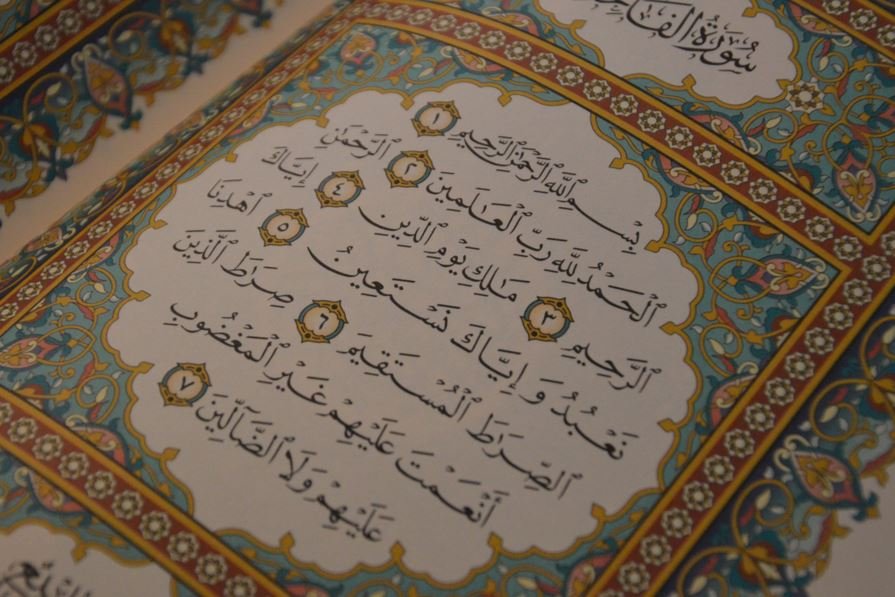 سُورَةُ
بِسْمِ ٱللَّهِ ٱلرَّحْمَٰنِ ٱلرَّحِيمِ ١
ٱلْحَمْدُ لِلَّهِ رَبِّ ٱلْعَٰلَمِينَ ٢ ٱلرَّحْمَٰنِ
ٱلرَّحِيمِ ٣ مَٰلِكِ يَوْمِ ٱلدِّينِ ٤ إِيَّاكَ
نَعْبُدُ وَإِيَّاكَ نَسْتَعِينُ ٥ ٱهْدِنَا
ٱلصِّرَٰطَ ٱلْمُسْتَقِيمَ ٦ صِرَٰطَ ٱلَّذِينَ
أَنْعَمْتَ عَلَيْهِمْ غَيْرِ ٱلْمَغْضُوبِ
عَلَيْهِمْ وَلَا ٱلضَّآلِّينَ ٧